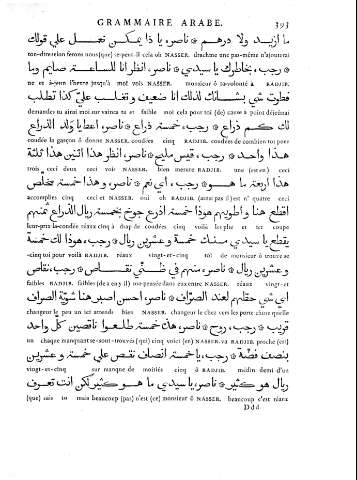 GRAMMAIRE ARABE. 393
ما ازيد ولا درهم * ناصر، يا ذا يمكن نعمل علي قولك
ton-dire selon ferons nous (que) se peut-il cela oh NASSER. drachme une pas-même n'ajouterai
* رجب، بخاطرك يا سيدي * ناصر، انظر انا للساعة صايم وما
ne et à-jeun l'heure jusqu'à moi vois NASSER. monsieur ô ta-volonté à RADJIB.
فطرت شي بشانك لذلك انا ضعيف وتغلب علي كذا تطلب
demandes tu ainsi moi sur vaincs tu et faible moi cela pour toi (de) cause à point déjeûné
لك كم ذراع * رجب، خمسة ذراع * ناصر، اعط يا ولد الذراع
coudée la garçon ô donne NASSER. coudées cinq RADJIB. coudées de combien toi pour
هذا واحد * رجب، قيس مليح * ناصر، انظر هذا اثنين هذا ثلثة
trois ceci deux ceci vois NASSER. bien mesure RADJIB. une (est) ceci
هذا اربعة ما هو * رجب، اي نعم * ناصر، وهذا خمسة خلص
accomplies cinq ceci et NASSER. oui oh RADJIB. (ainsi pas il) est n' quatre ceci
اقطع هنا واطويهم هوذا خمسة اذرع جوخ بخمسة ريال الذراع ثمنهم
leur-prix la-coudée réaux cinq à drap de coudées cinq voilà les plie et ici coupe
يقطع يا سيدي منك خمسة وعشرين ريال * رجب، هوذا لك خمسة
cinq toi pour voilà RADJIB. réaux vingt-et-cinq toi de monsieur ô trouve se
وعشرين ريال * ناصر، منهم في ظني نقاص * رجب، نقاص
faibles RADJIB. faibles (de a en y il) ma-pensée dans eux entre NASSER. réaux vingt-et
اي شي حقلهم لعند الصراف * ناصر، احسن اصبر هنا شوية الصراف
changeur le peu un ici attends bien NASSER. changeur le chez vers les porte chose quelle
قريب * رجب، روح * ناصر، هاك خمسة طلعوا ناقصين كل واحد
un chaque manquant se-sont-trouvés (qui) cinq voici (en) NASSER. va RADJIB. proche (est)
بنصف فضة * رجب، يا خمسة انصاف نقص علي خمسة وعشرين
vingt-et-cinq sur manque de moitiés cinq ô RADJIB. médin demi d'un
ريال هو كثير * ناصر، يا سيدي ما هو كثير لكن انت تعرف
(que) sais tu mais beaucoup (pas) n'est (ce) monsieur ô NASSER. beaucoup c'est réaux
Ddd